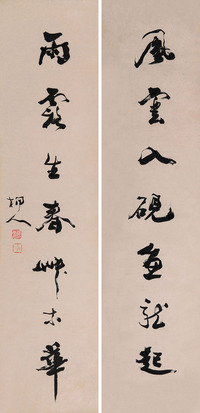 風雲入硯魚龍起
雨露生春草木華
人